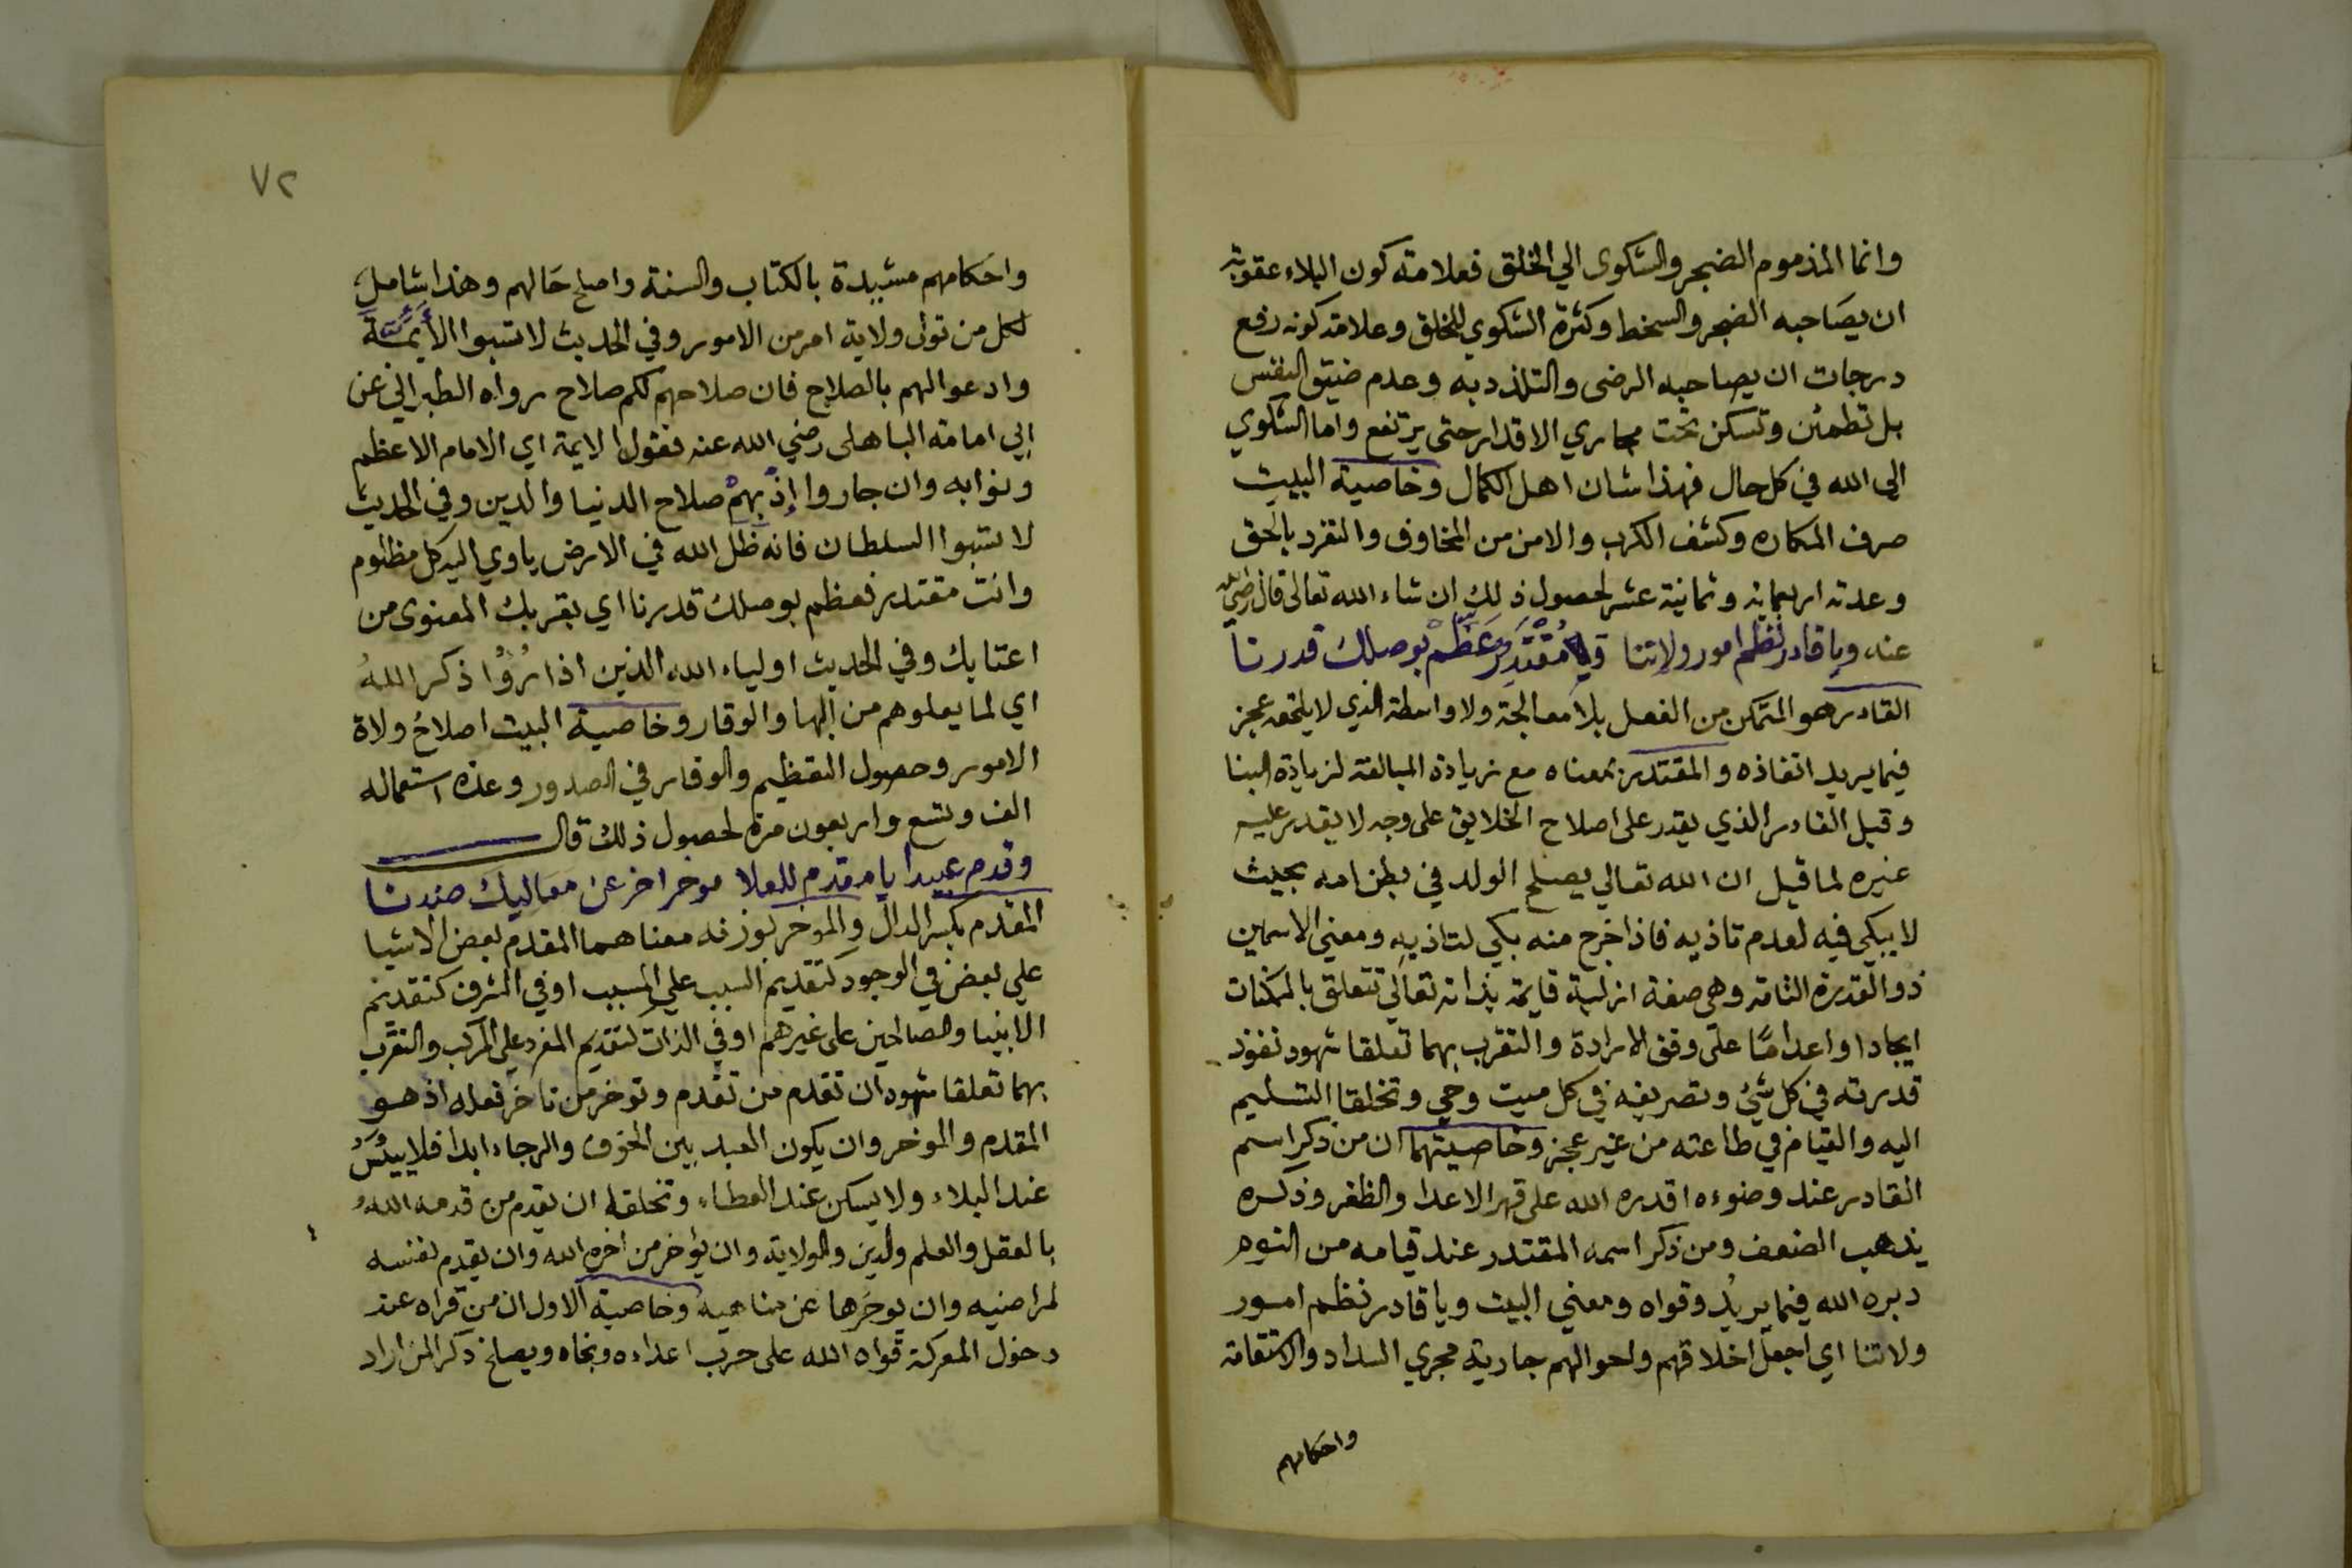 وانما المذموم الضجر والشكوى الي الخلق فعلامة كون البلاء عقوبة
ان يصاحبه الضجر والسخط وكثرة الشكوي للخلق وعلامة كونه رفع
درجات ان يصاحبه الرضى والتلذذ به وعدم ضيق النفس
بل تطمئن وتسكن تحت مجاري الاقدار حتى يرتفع واما الشكوي
الي الله في كل حال فهذا شان اهل الكمال وخاصية البيت
صرف المكاره وكشف الكرب والامن من المخاوف والتفرد بالحق
وعدته اربعماية وثمانية عشر لحصول ذلك ان شاء الله تعالى قال رضي الله
عنه ويا قادر نظم امور ولاتنا ويا مُقْتَدِر عَظِّمْ بوصلك قدرنا
القادر هو المتمكن من الفعل بلا معالجة ولا واسطة الذي لا يلحقه عجز
فيما يريد انفاذه والمقتدر بمعناه مع زيادة المبالغة لزيادة البنا
وقيل القادر الذي يقدر على اصلاح الخلايق على وجه لا يقدر عليه
غيره لما قيل ان الله تعالي يصلح الولد في بطن امه بحيث
لا يبكي فيه لعدم تاذيه فاذا خرج منه بكي لتاذيه ومعني الاسمين
ذو القدرة التامة وهي صفة ازلية قايمة بذاته تعالي تتعلق بالممكنات
ايجادا واعدامًا على وفق الارادة والتقرب بهما تعلقا شهود نفوذ
قدرته في كل شيء وتصريفه في كل ميت وحي وتخلقا التسليم
اليه والقيام في طاعته من غير عجز وخاصيتهما ان من ذكر اسم
القادر عند وضوءه اقدره الله على قهر الاعدا والظفر وذكره
يذهب الضعف ومن ذكر اسمه المقتدر عند قيامه من النوم
دبره الله فيما يريدُ وقواه ومعني البيت ويا قادر نظم امور
ولاتنا اي اجعل اخلاقهم واحوالهم جارية مجري السداد والاستقامة
واحكامهم
٧٢
واحكامهم مشيدة بالكتاب والسنة واصلح حَالهم وهذا شامل
لكل من تولى ولاية امر من الامور وفي الحديث لا تسبوا الأَيمَّة
وادعوا لهم بالصلاح فان صلاحهم لكم صلاح رواه الطبراني عن
ابي امامة الباهلى رضي الله عنه فقوله الايمة اي الامام الاعظم
ونوابه وان جاروا إذ بهمْ صلاح الدنيا والدين وفي الحديث
لا تسبوا السلطان فانه ظل الله في الارض ياوي اليه كل مظلوم
وانت مقتدر فعظم بوصلك قدرنا اي بقربك المعنوى من
اعتابك وفي الحديث اولياء الله الذين اذا رُؤُا ذكر اللهُ
اي لما يعلوهم من البها والوقار وخاصية البيت اصلاحُ ولاة
الامور وحصول التعظيم والوقار في الصدور وعدة استعماله
الف وتسع واربعون مرة لحصول ذلك قال
وقدم عبيدا يا مقدم للعلا موخر اخر عن معاليك ضدنا
المقدم بكسر الدال والموخر بوزنه معناهما المقدم بعض الاشيا
علي بعض في الوجود كتقديم السبب علي المسبب او في الشرف كتقديم
الانبيا والصالحين على غيرهم او في الذات كتقديم المفرد علي المركب والتقرب
بهما تعلقا شهود ان تقدم من تقدم وتوخر من تاخر فعله اذ هو
المقدم والموخر وان يكون العبد بين الخوف والرجاء ابدا فلا يَيْئَسُ
عند البلاء ولا يسكن عند العطاء وتخلقا ان يقدم من قدمه اللهُ
بالعقل والعلم والدين والولاية وان يؤخر من اخره الله وان يقدم نفسه
لمراضيه وان يوخَرها عن مناهيه وخاصية الاول ان من قراه عند
دخول المعركة قواه الله على حرب اعداءه ونجاه ويصلح ذكرا لمن اراد